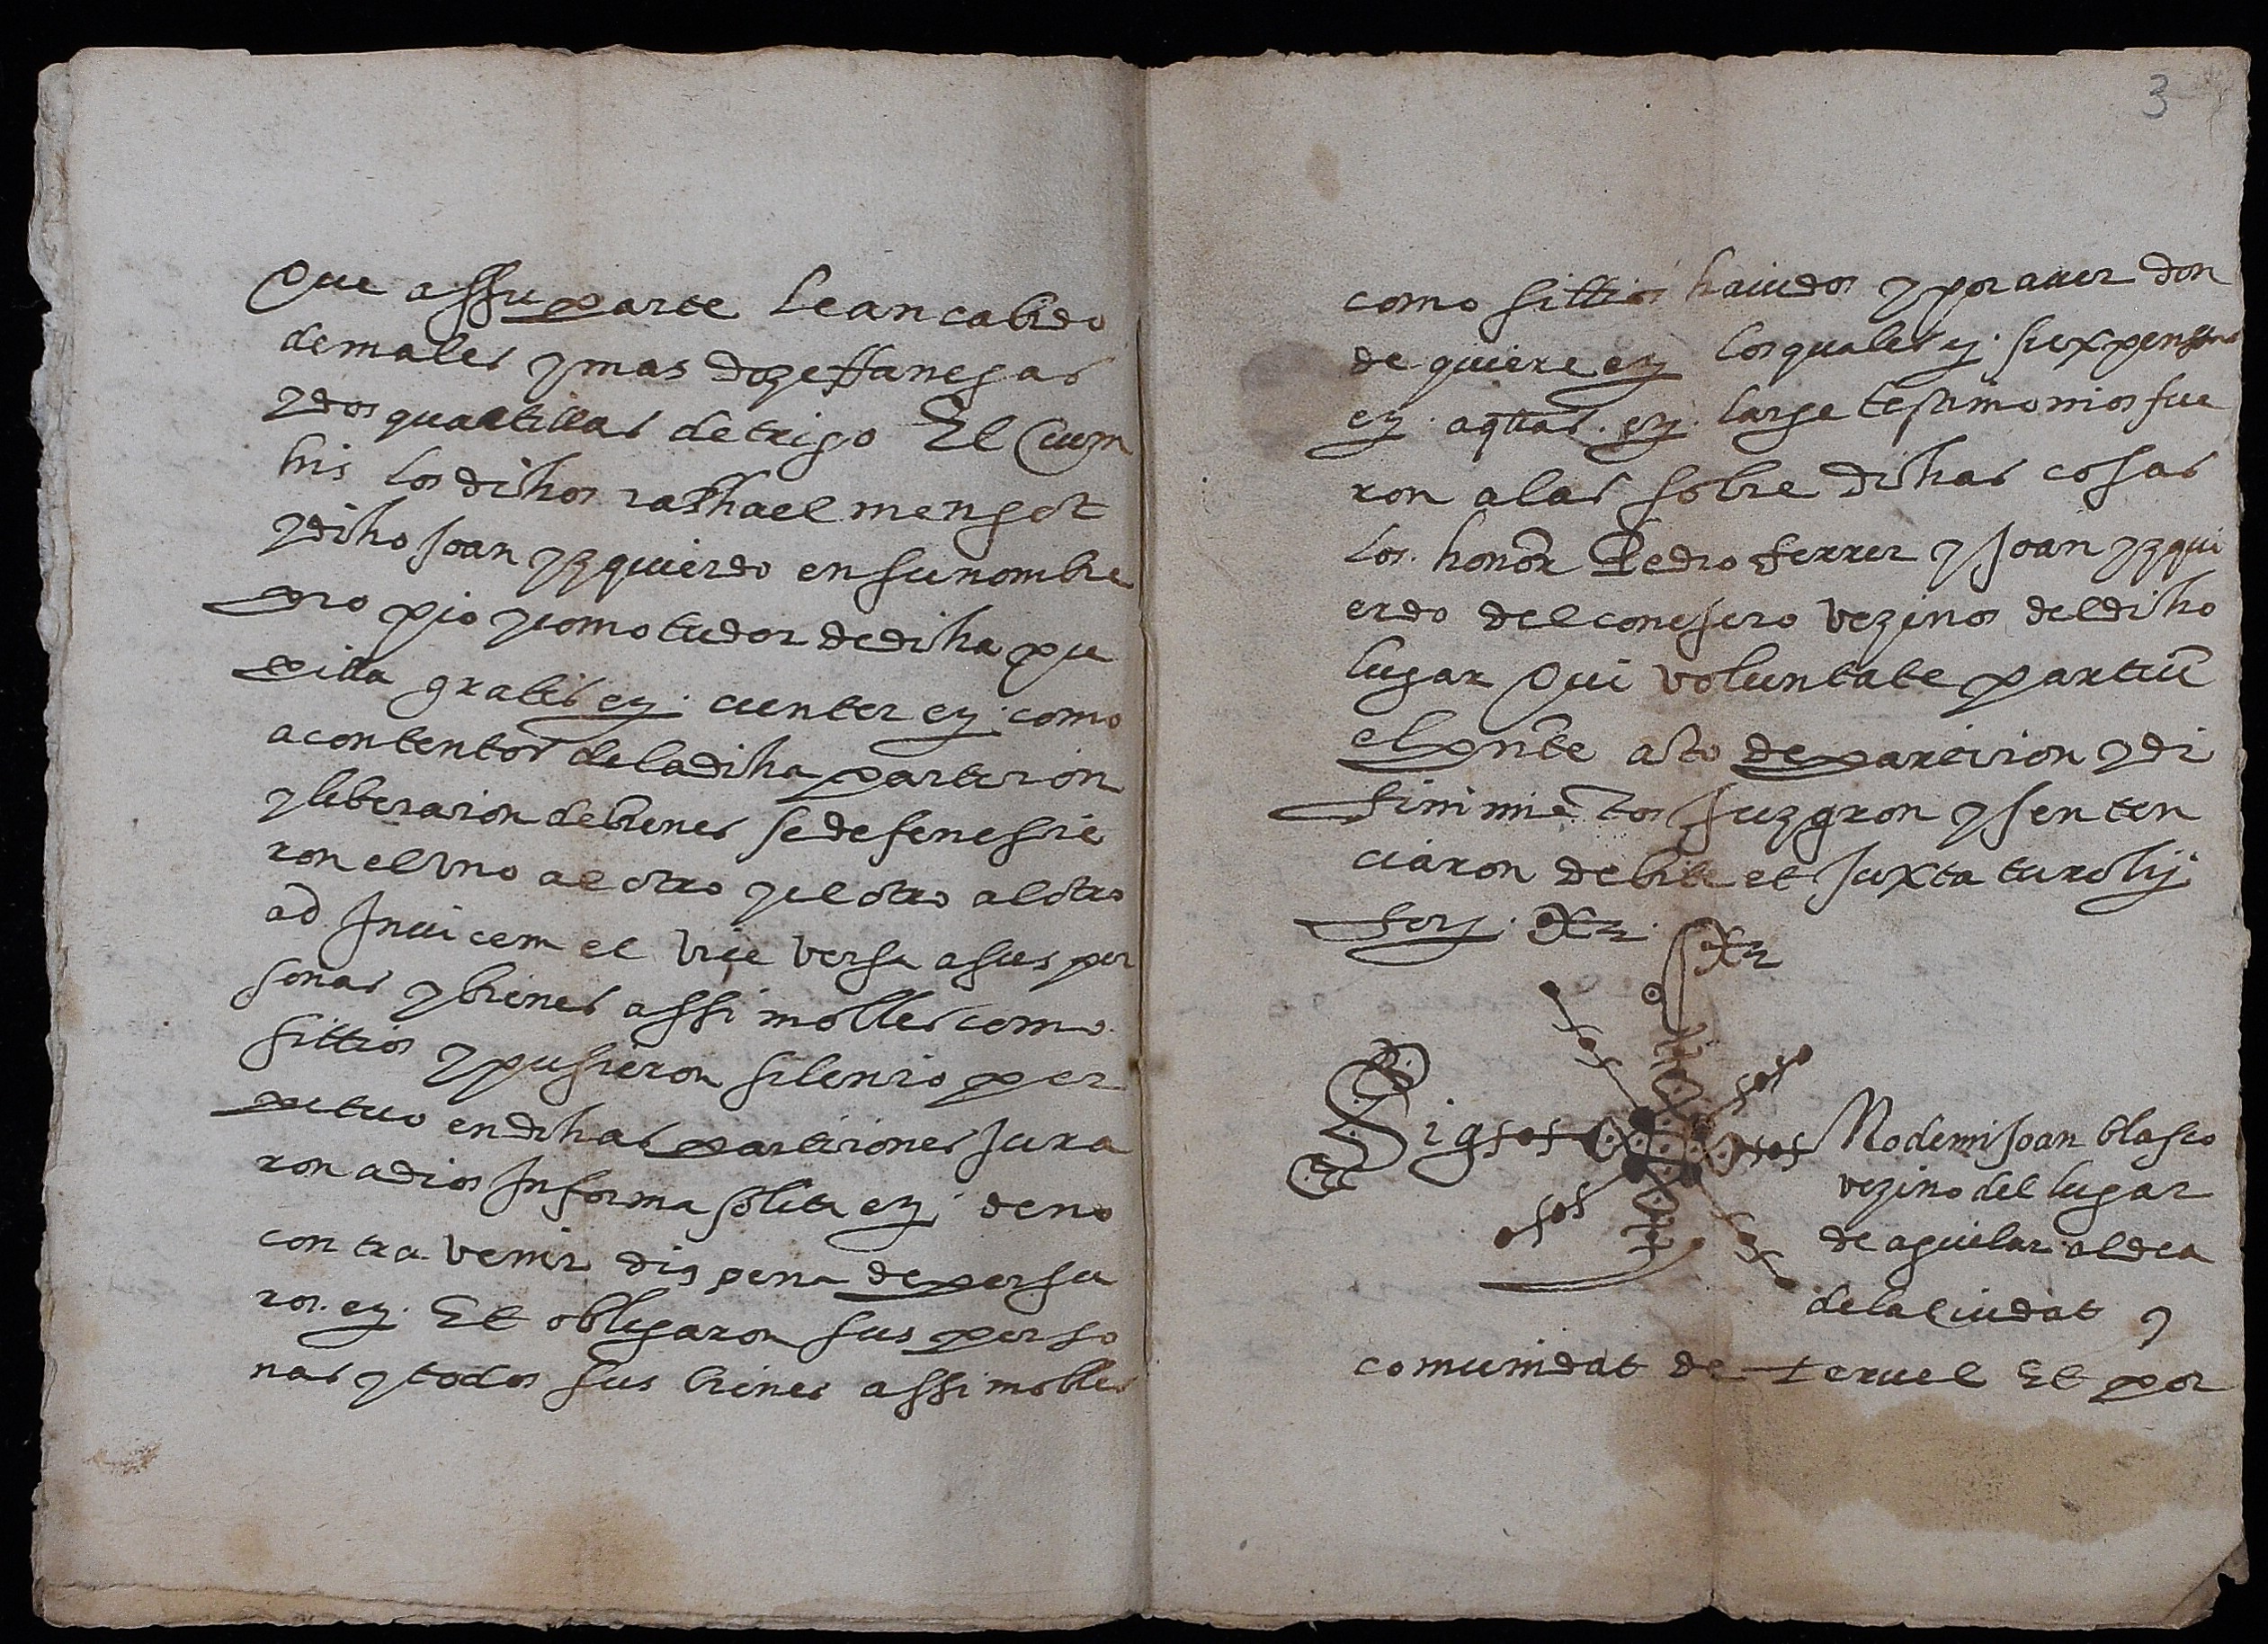 Que assu parte le an cabido
de males y mas doze ffanegas
y dos quartillas de trigo Et Cum
his los dichos raphael mengot
y dicho Joan yzquierdo en su nombre
pro pio y como tudor de dicha pu
pilla gratis ey. cienter ey. como
acontentos de la dicha particion
y liberacion de bienes se defenescie
ron el uno al otro y el otro al otro
ad Jnuicem et vice versa a sus per
sonas y bienes assi mobles como
sittios y pusieron silencio per
petuo en dichas particiones Jura
ron a dios Jn forma solita ey. de no
contra venir dis pena de perju
ros. ey. Et obligaron sus perso
nas y todos sus bienes assi mobles
3
como sittios hauidos y por auer don
de quiere ey los quales ey. si expensas
ey. a quas. ey. large testimonios fue
ron a las sobre dichas cosas
los. honor Pedro ferrer y Joan yzqui
erdo del conejero vezinos del dicho
lugar Qui voluntate partiu
el pnte acto de particion y di
finimieto Juzgron y senten
ciaron debite et Juxta turolij
forj.
Sig No de mi Joan blasco
vezino del lugar
de aguilar aldea
de la Ciudat y
comunidat de teruel Et por